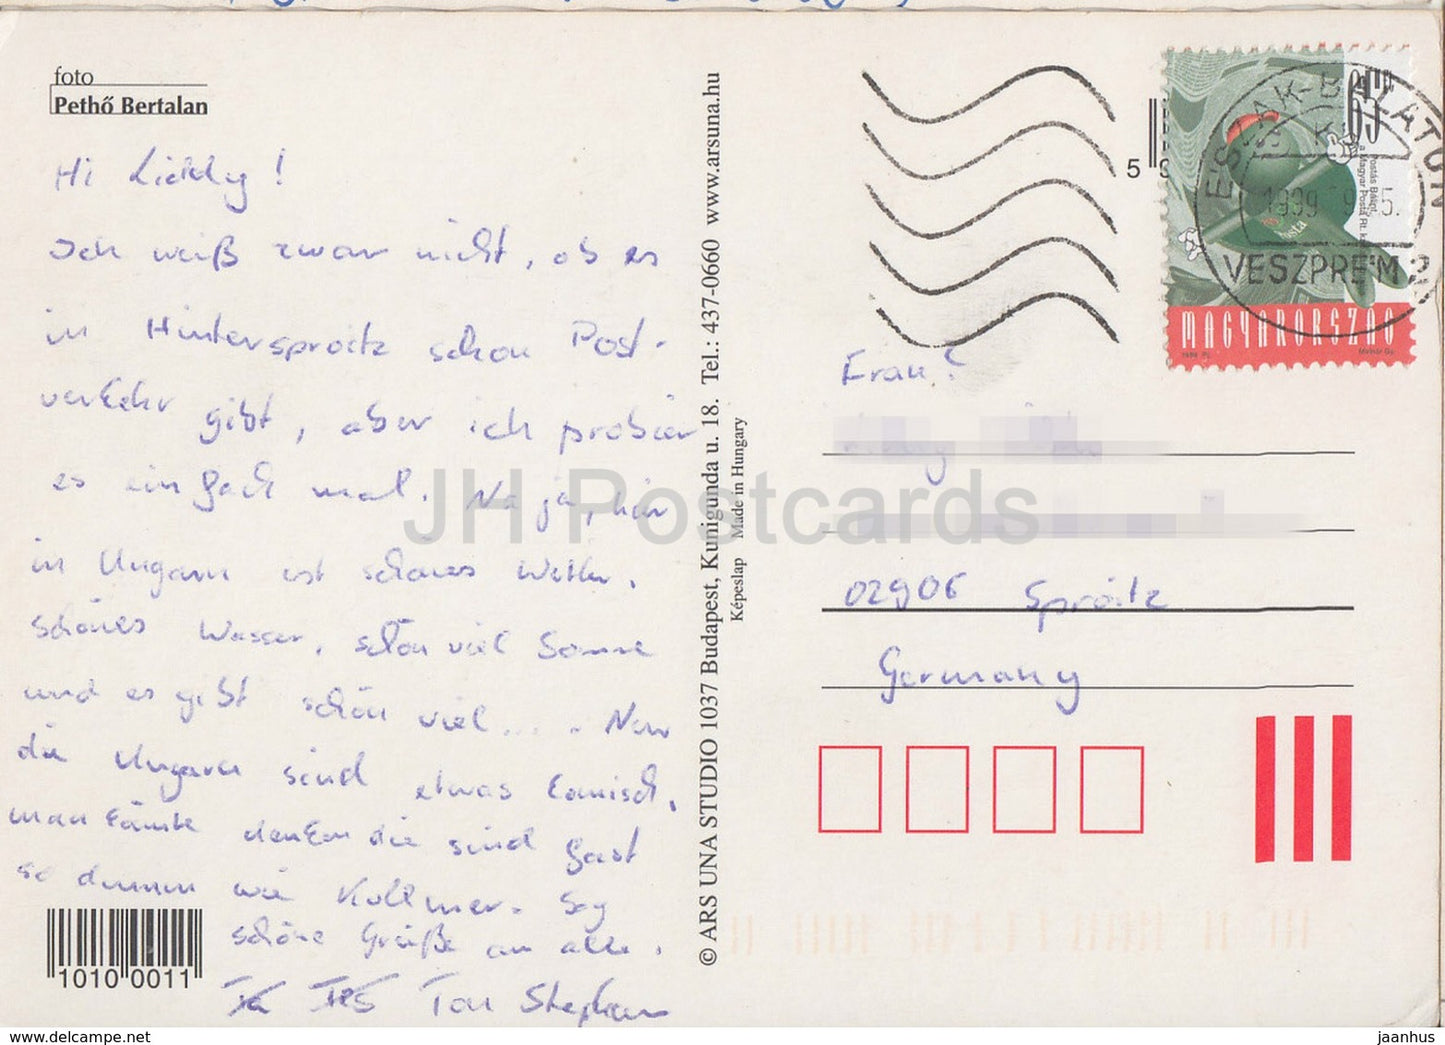 foto
Pethő Bertalan
Hi Liddy!
Ich weiß zwar nicht, ob es
in Hintersproitz schon Post-
verkehr gibt, aber ich probier
es einfach mal. Na ja, hier
in Ungarn ist schönes Wetter,
schönes Wasser, schön viel Sonne
und es gibt schön viel.... Nur
die Ungarn sind etwas komisch,
man könnte denken die sind fast
so dumm wie Kollmer. Sag
schöne Grüße an alle.
Stephan
1010 0011
© ARS UNA STUDIO 1037 Budapest, Kunigunda u. 18. Tel.: 437-0660 www.arsuna.hu
Képeslap Made in Hungary
5
65
ÉSZAK-BALATON
1999
VESZPRÉM 2
Posta
MAGYARORSZÁG
Frau
02906 Sproitz
Germany
JH Postcards
www.delcampe.net
jaanhus